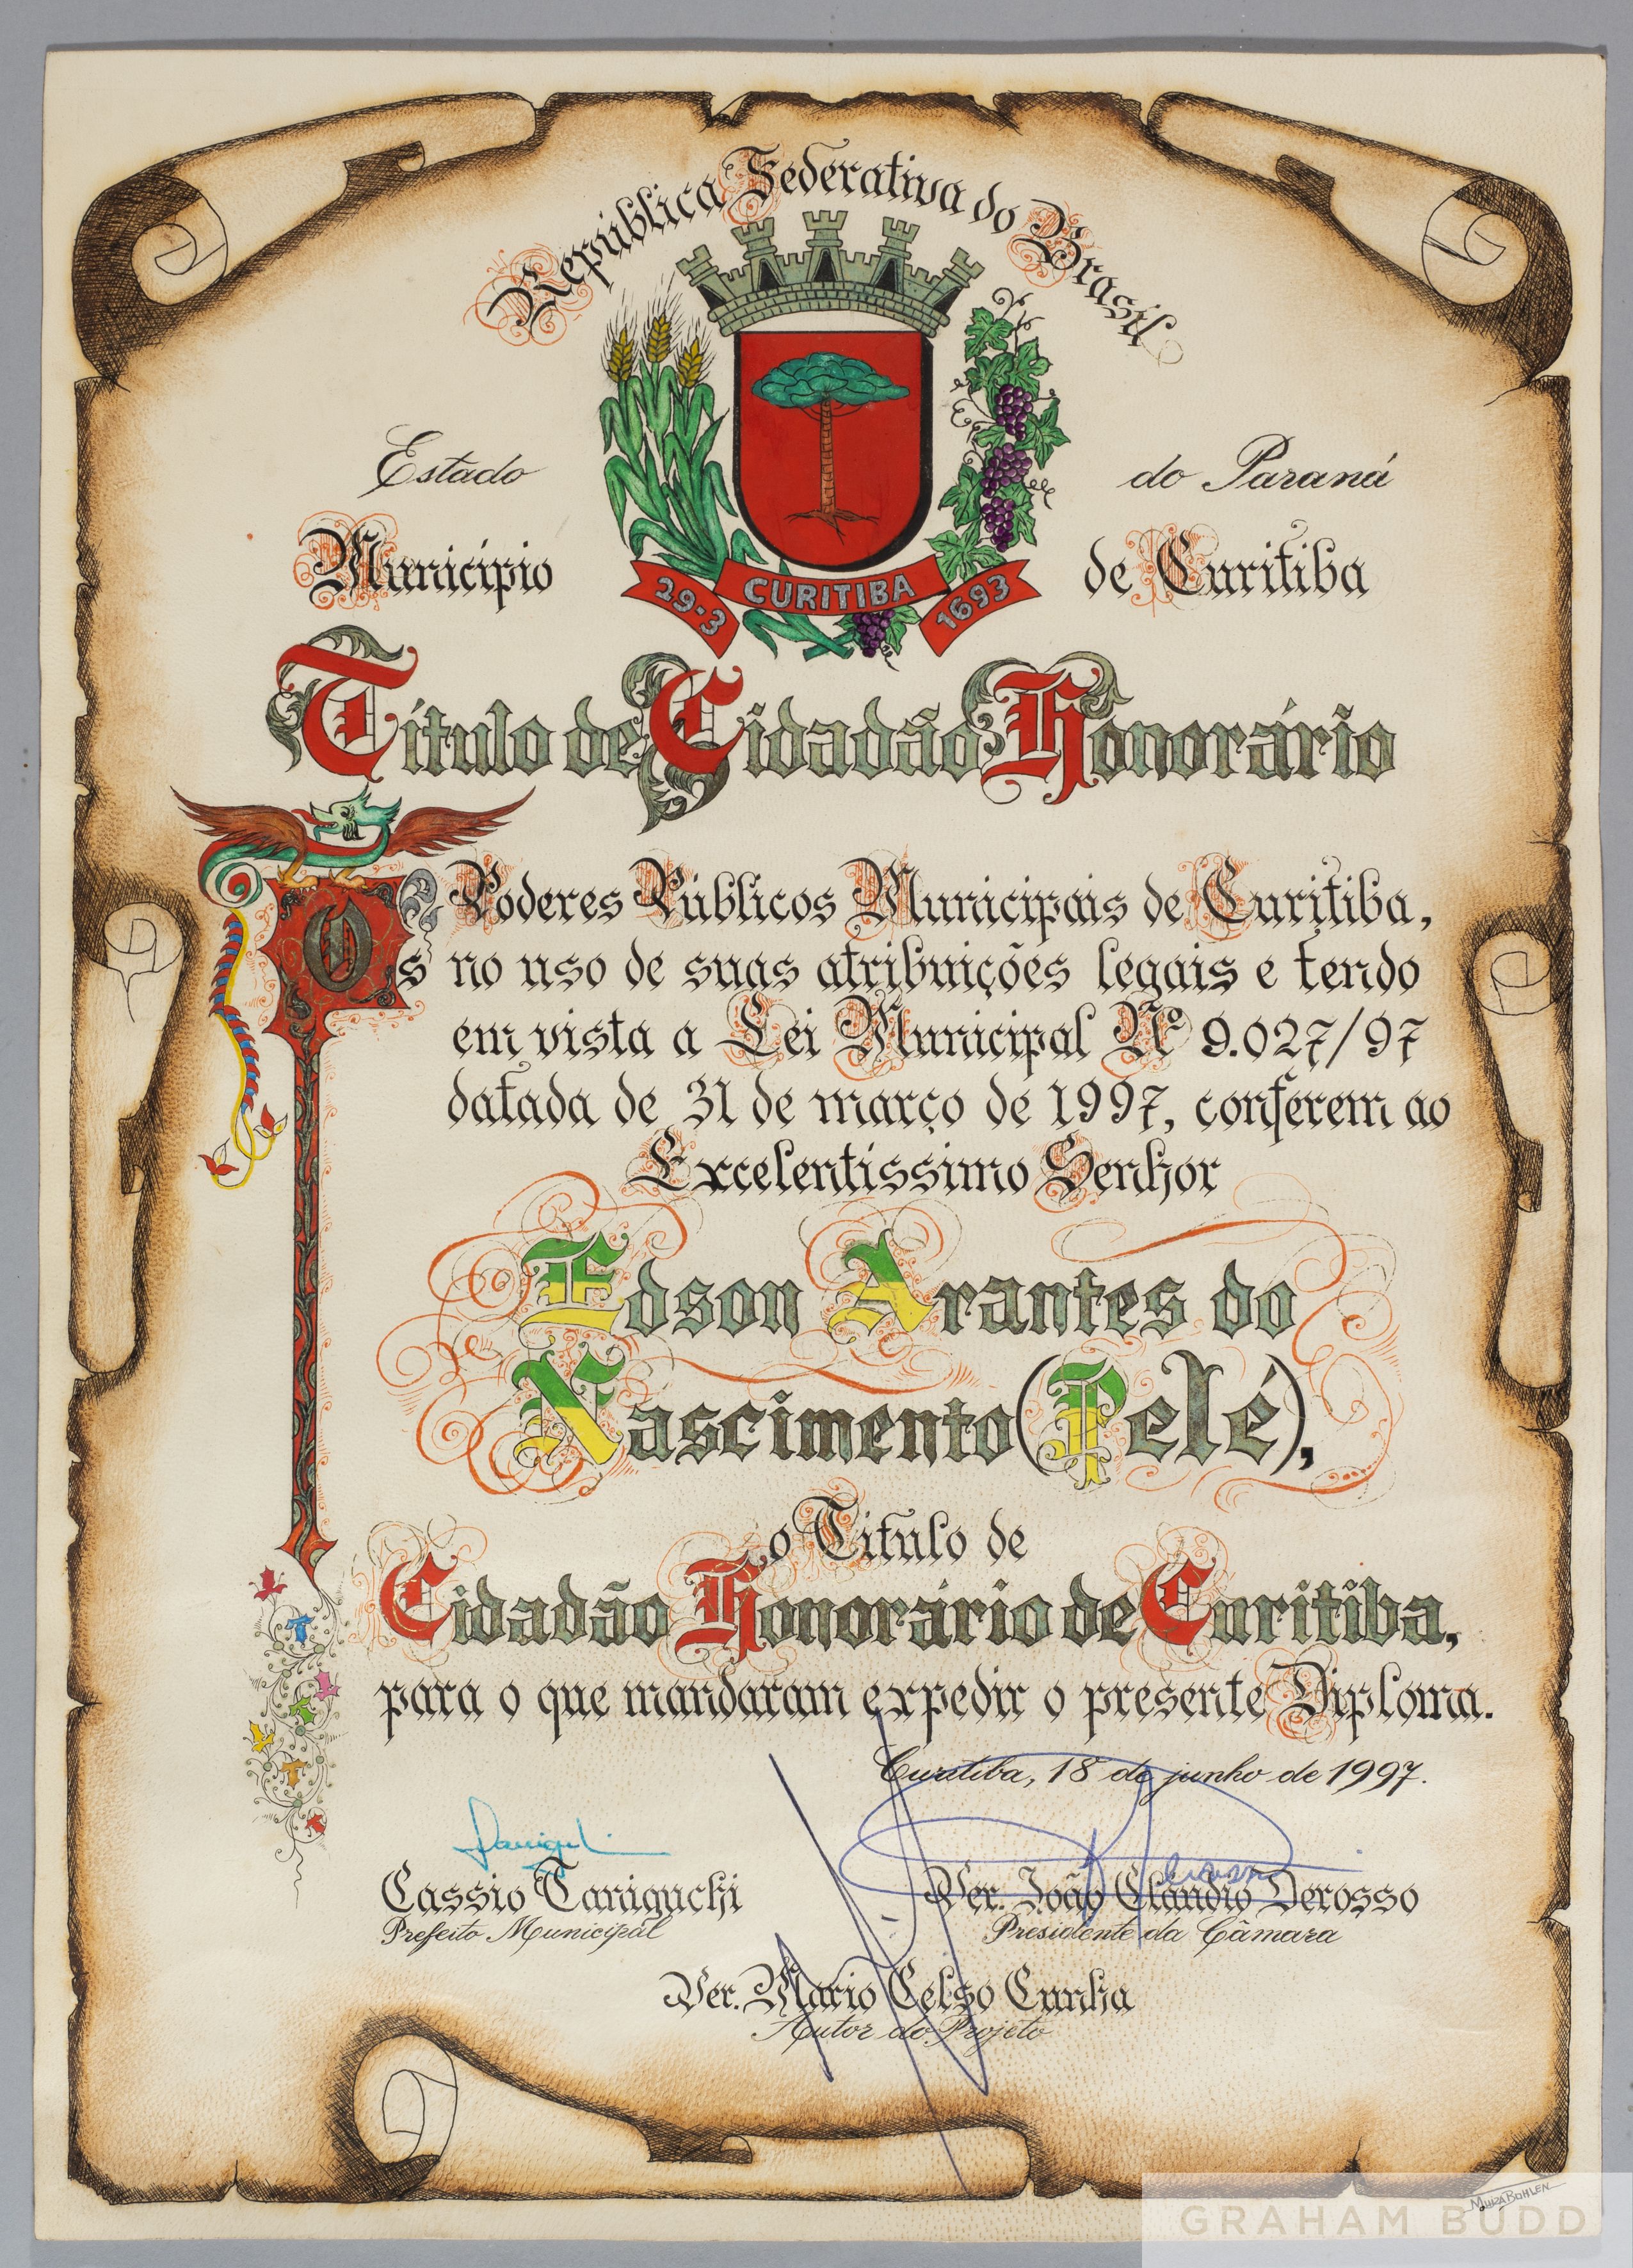 República Federativa do Brasil
Estado do Paraná
Município de Curitiba
29-3 CURITIBA 1693
Título de Cidadão Honorário
Os Poderes Públicos Municipais de Curitiba,
no uso de suas atribuições legais e tendo
em vista a Lei Municipal Nº 9.027/97
datada de 31 de março de 1997, conferem ao
Excelentíssimo Senhor
Edson Arantes do
Nascimento (Pelé),
o Título de
Cidadão Honorário de Curitiba,
para o que mandaram expedir o presente Diploma.
Curitiba, 18 de junho de 1997.
Cassio Taniguchi
Prefeito Municipal
Ver. João Cláudio Derosso
Presidente da Câmara
Ver. Mario Celso Cunha
Autor do Projeto
GRAHAM BUDD